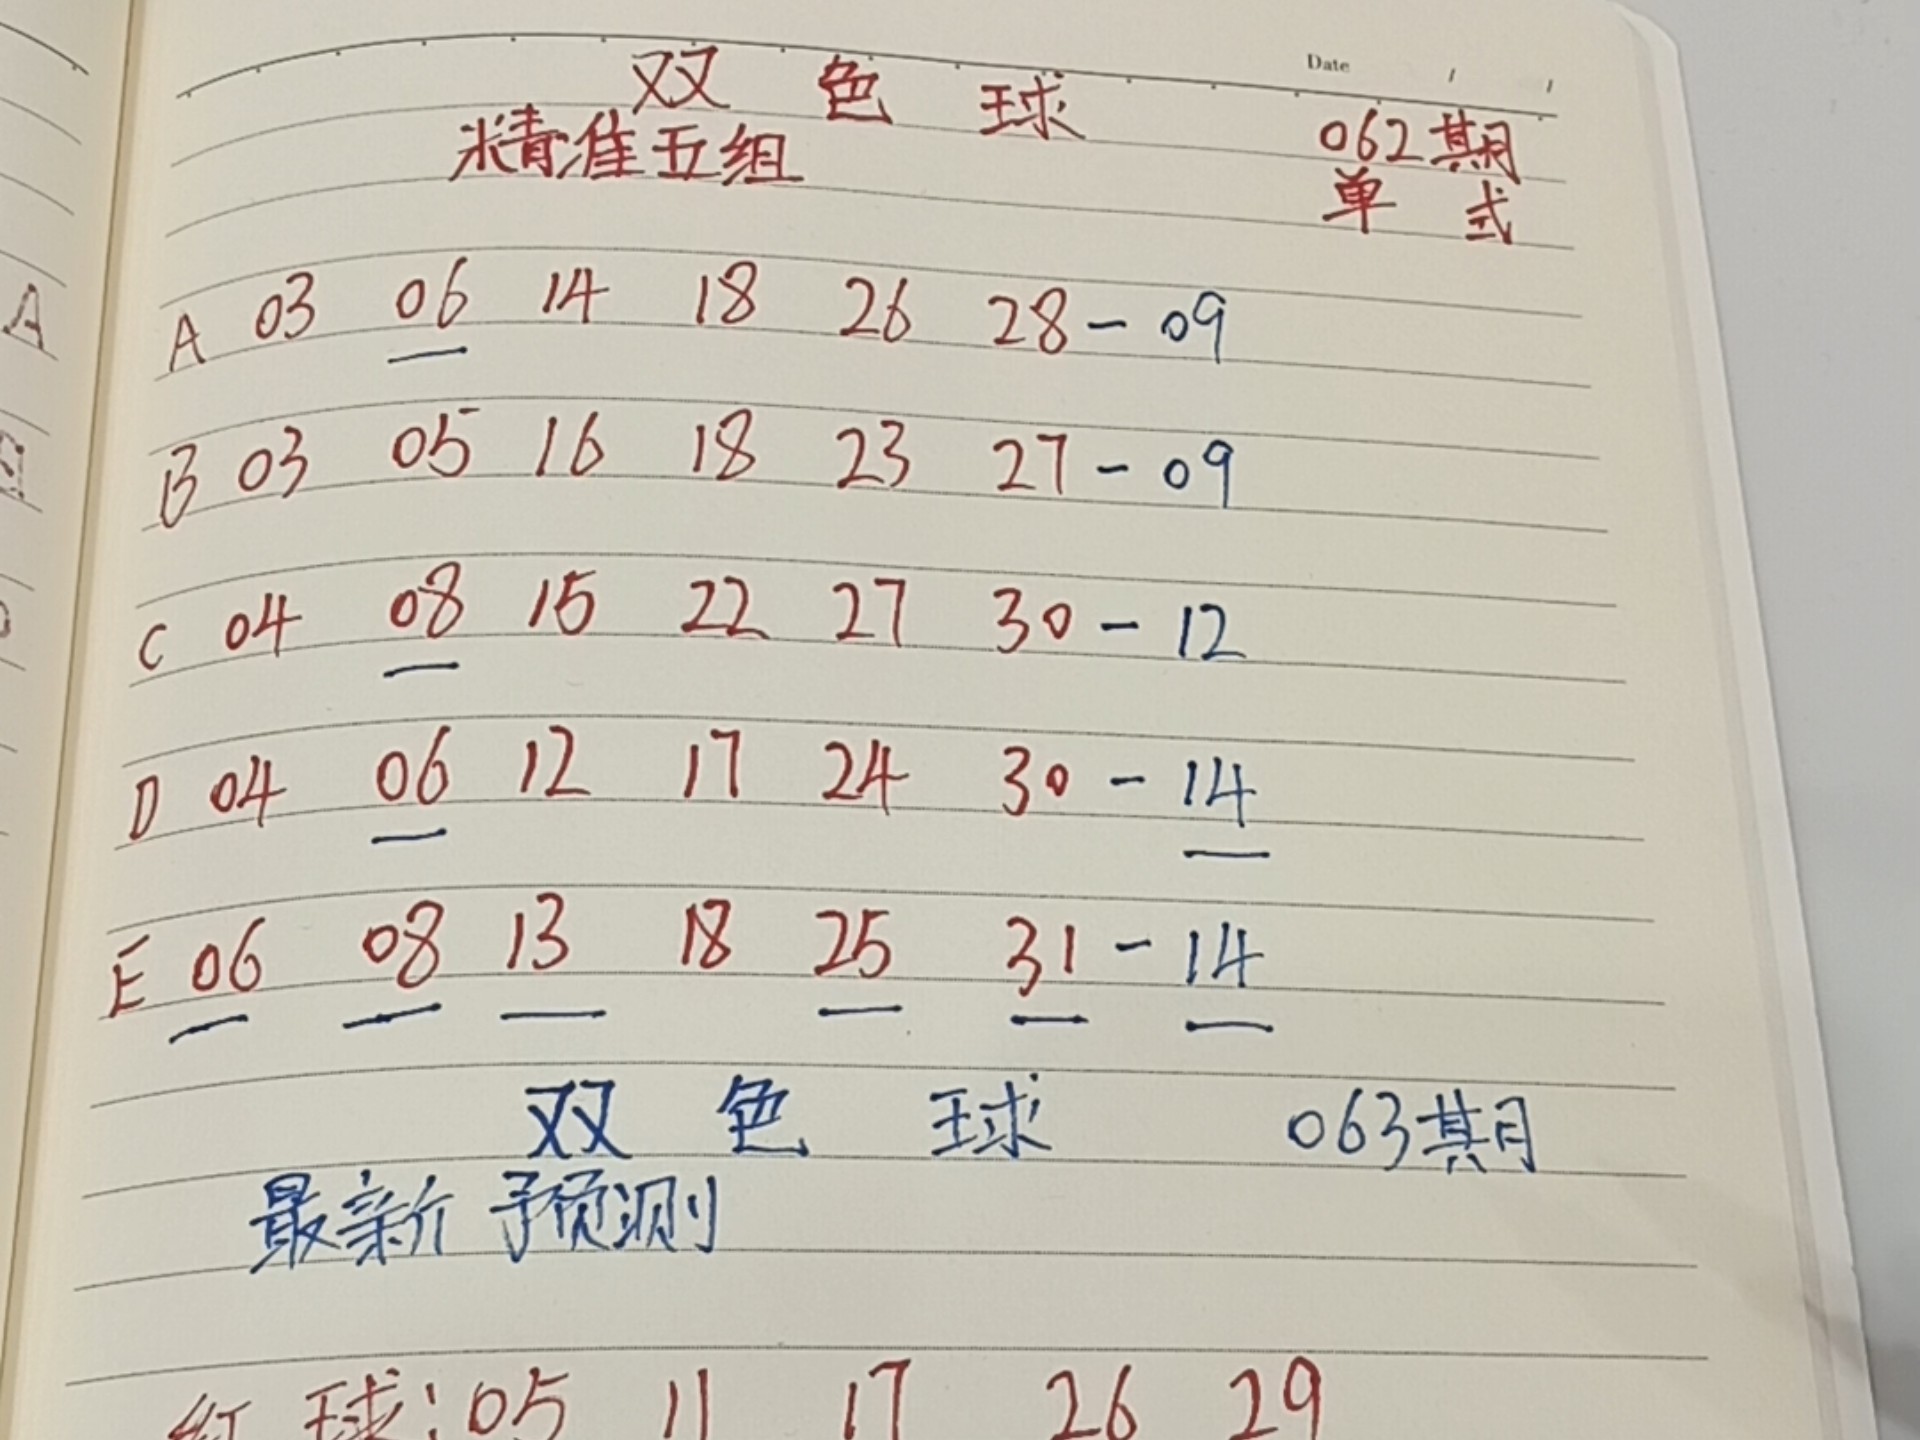 Date / /
双 色 球
精准五组 062期
单 式
A 03 06 14 18 26 28 - 09
B 03 05 16 18 23 27 - 09
C 04 08 15 22 27 30 - 12
D 04 06 12 17 24 30 - 14
E 06 08 13 18 25 31 - 14
双 色 球 063期
最新 予页测
红 球: 05 11 17 26 29
A